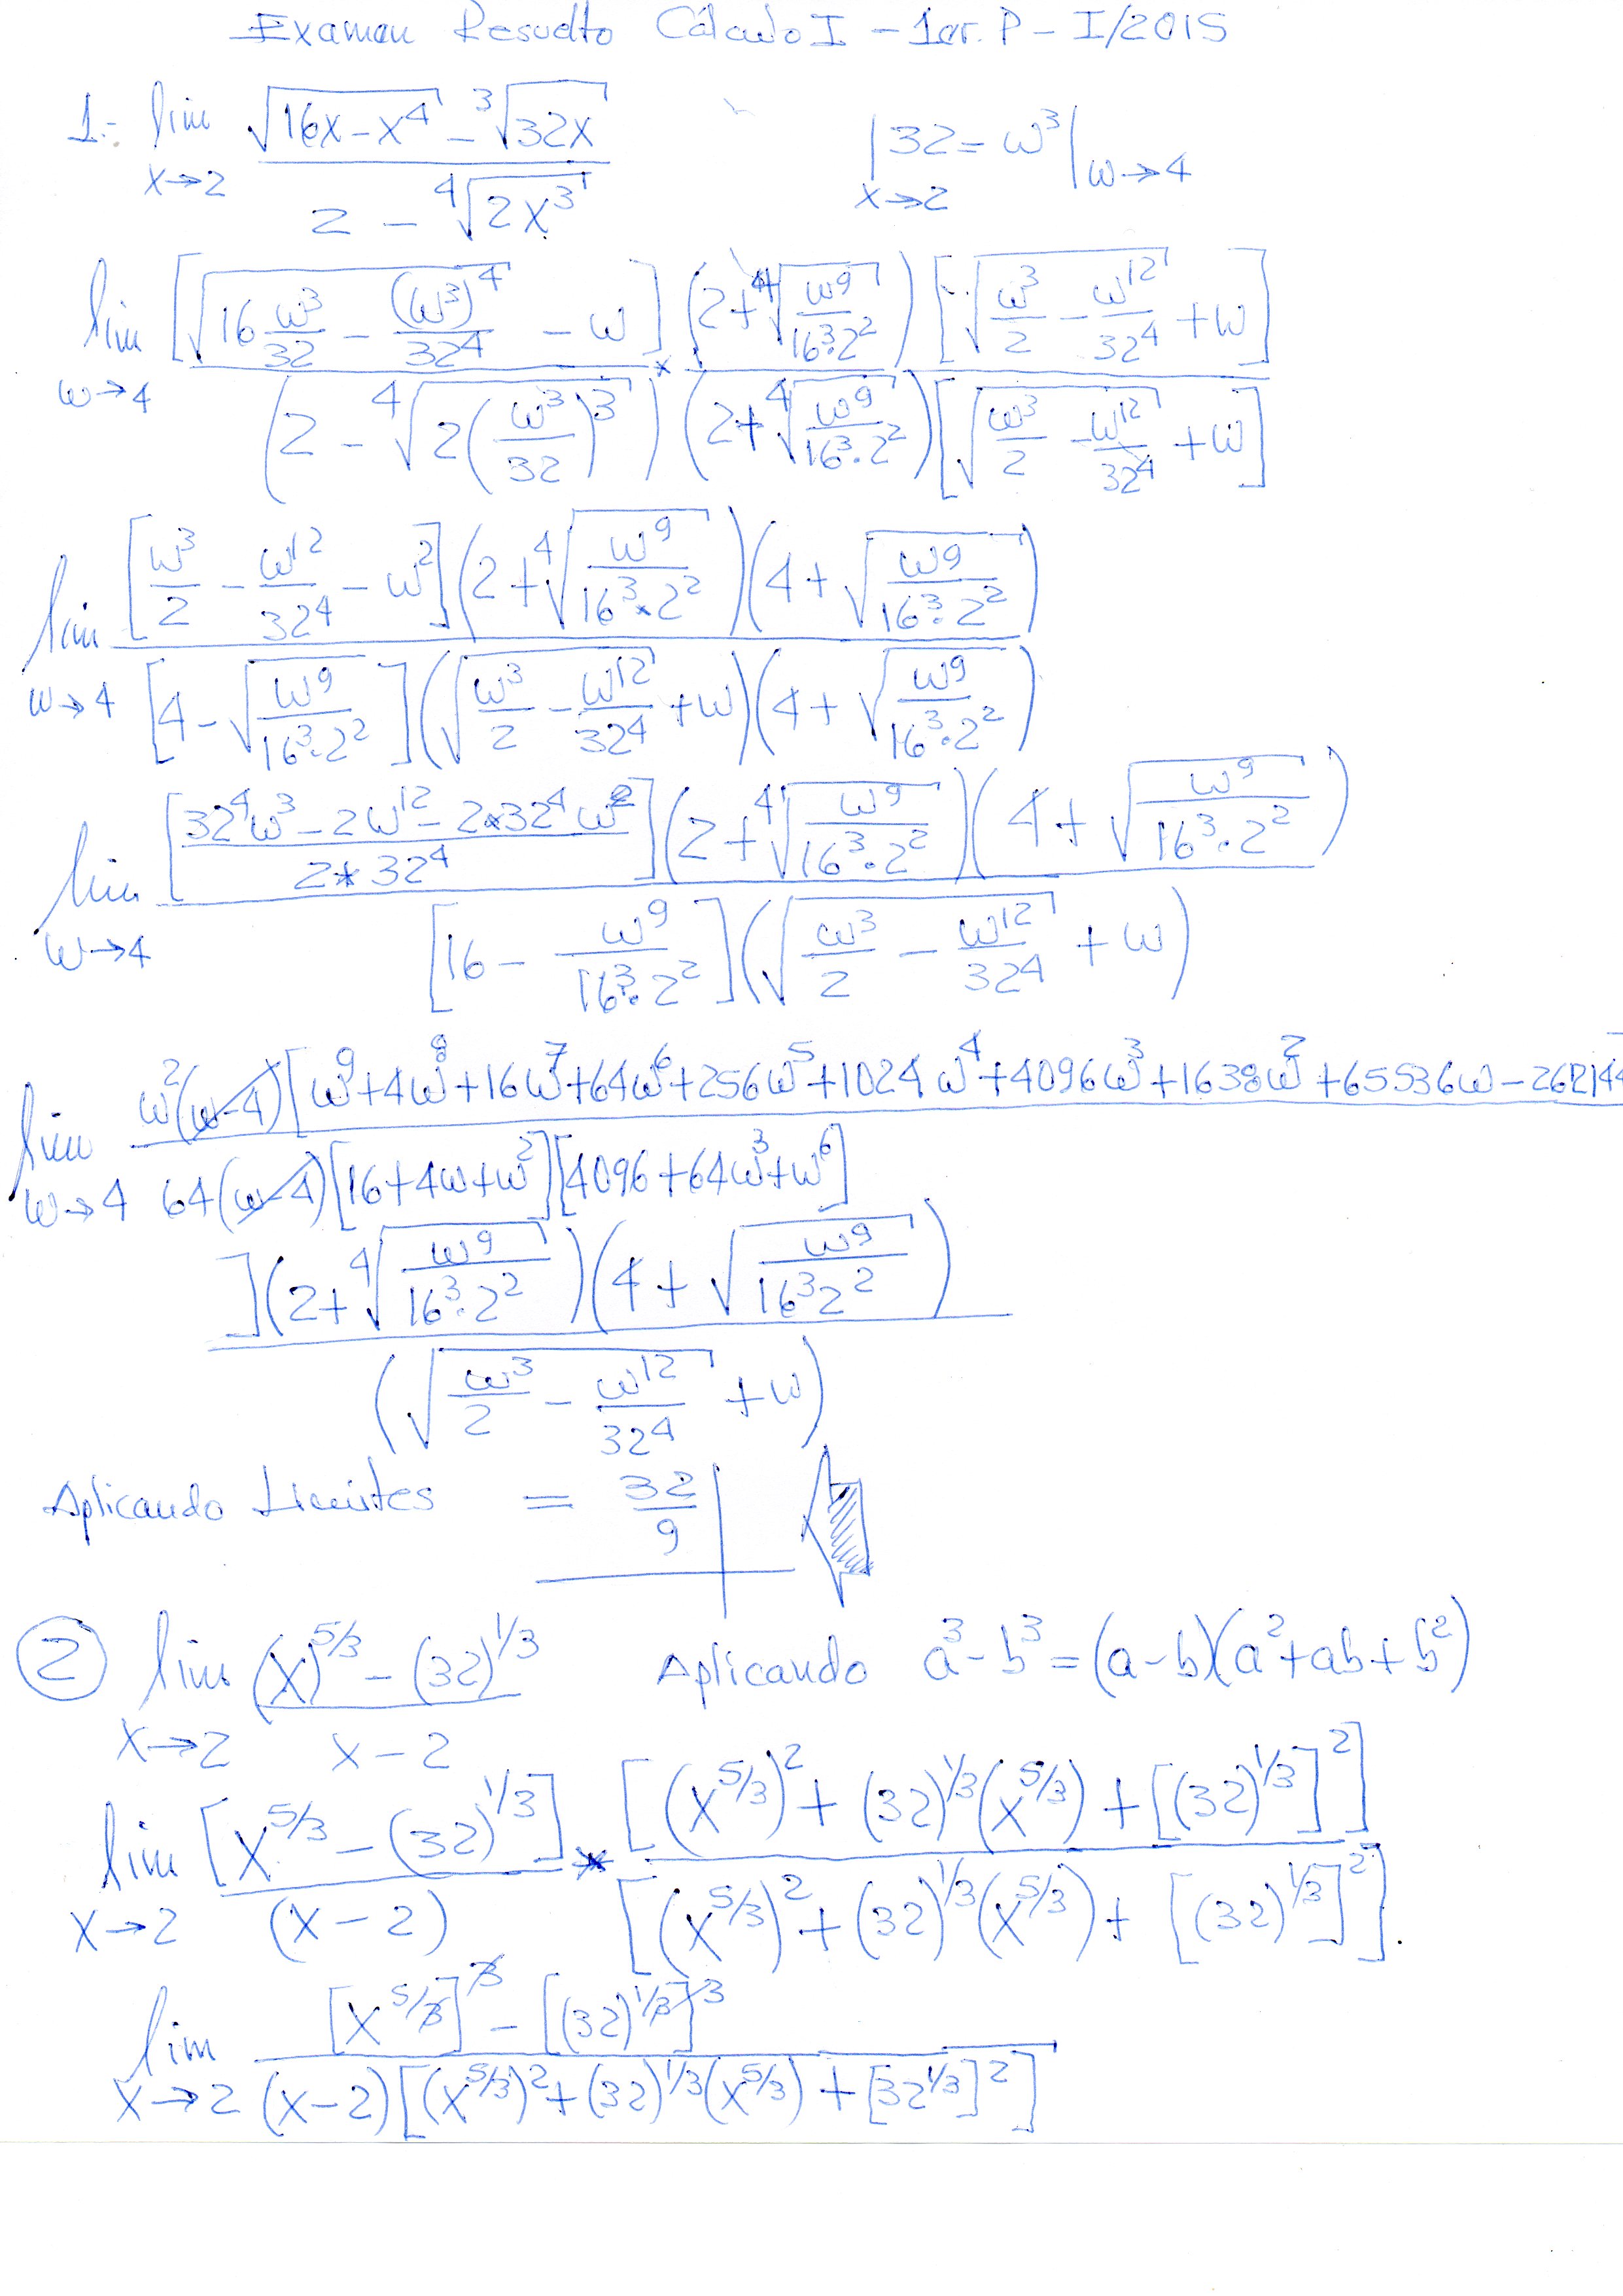 Examen Resuelto Cálculo I - 1er. P - I/2015
1.- lim x→2 (√(16x-x⁴) - ³√(32x)) / (2 - ⁴√(2x³))    |32 = ω³| x→2 ω→4
lim ω→4 [√(16 ω³/32 - (ω³)⁴/32⁴) - ω] / (2 - ⁴√(2(ω³/32)³)) * (2+⁴√(ω⁹/(16³·2²))) / (2+⁴√(ω⁹/(16³·2²))) [√(ω³/2 - ω¹²/32⁴) + ω] / [√(ω³/2 - ω¹²/32⁴) + ω]
lim ω→4 [ω³/2 - ω¹²/32⁴ - ω²](2+⁴√(ω⁹/(16³*2²)))(4+√(ω⁹/(16³·2²))) / [4-√(ω⁹/(16³·2²))](√(ω³/2 - ω¹²/32⁴) + ω)(4+√(ω⁹/(16³·2²)))
lim ω→4 [(32⁴ω³ - 2ω¹² - 2*32⁴ω²)/(2*32⁴)](2+⁴√(ω⁹/(16³·2²)))(4+√(ω⁹/(16³·2²))) / [16 - ω⁹/(16³·2²)](√(ω³/2 - ω¹²/32⁴) + ω)
lim ω→4 ω²(ω-4)[ω⁹+4ω⁸+16ω⁷+64ω⁶+256ω⁵+1024ω⁴+4096ω³+1638ω²+65536ω-262144 / 64(ω-4)[16+4ω+ω²][4096+64ω³+ω⁶]
](2+⁴√(ω⁹/(16³·2²)))(4+√(ω⁹/(16³2²))) / (√(ω³/2 - ω¹²/32⁴) + ω)
Aplicando Limites = 32/9
② lim x→2 ((x)^(5/3) - (32)^(1/3)) / (x-2)    Aplicando a³-b³=(a-b)(a²+ab+b²)
lim x→2 [x^(5/3) - (32)^(1/3)] / (x-2) * [(x^(5/3))² + (32)^(1/3)(x^(5/3)) + [(32)^(1/3)]²] / [(x^(5/3))² + (32)^(1/3)(x^(5/3)) + [(32)^(1/3)]²].
lim x→2 ([x^(5/3)]³ - [(32)^(1/3)]³) / (x-2)[(x^(5/3))² + (32)^(1/3)(x^(5/3)) + [32^(1/3)]²]